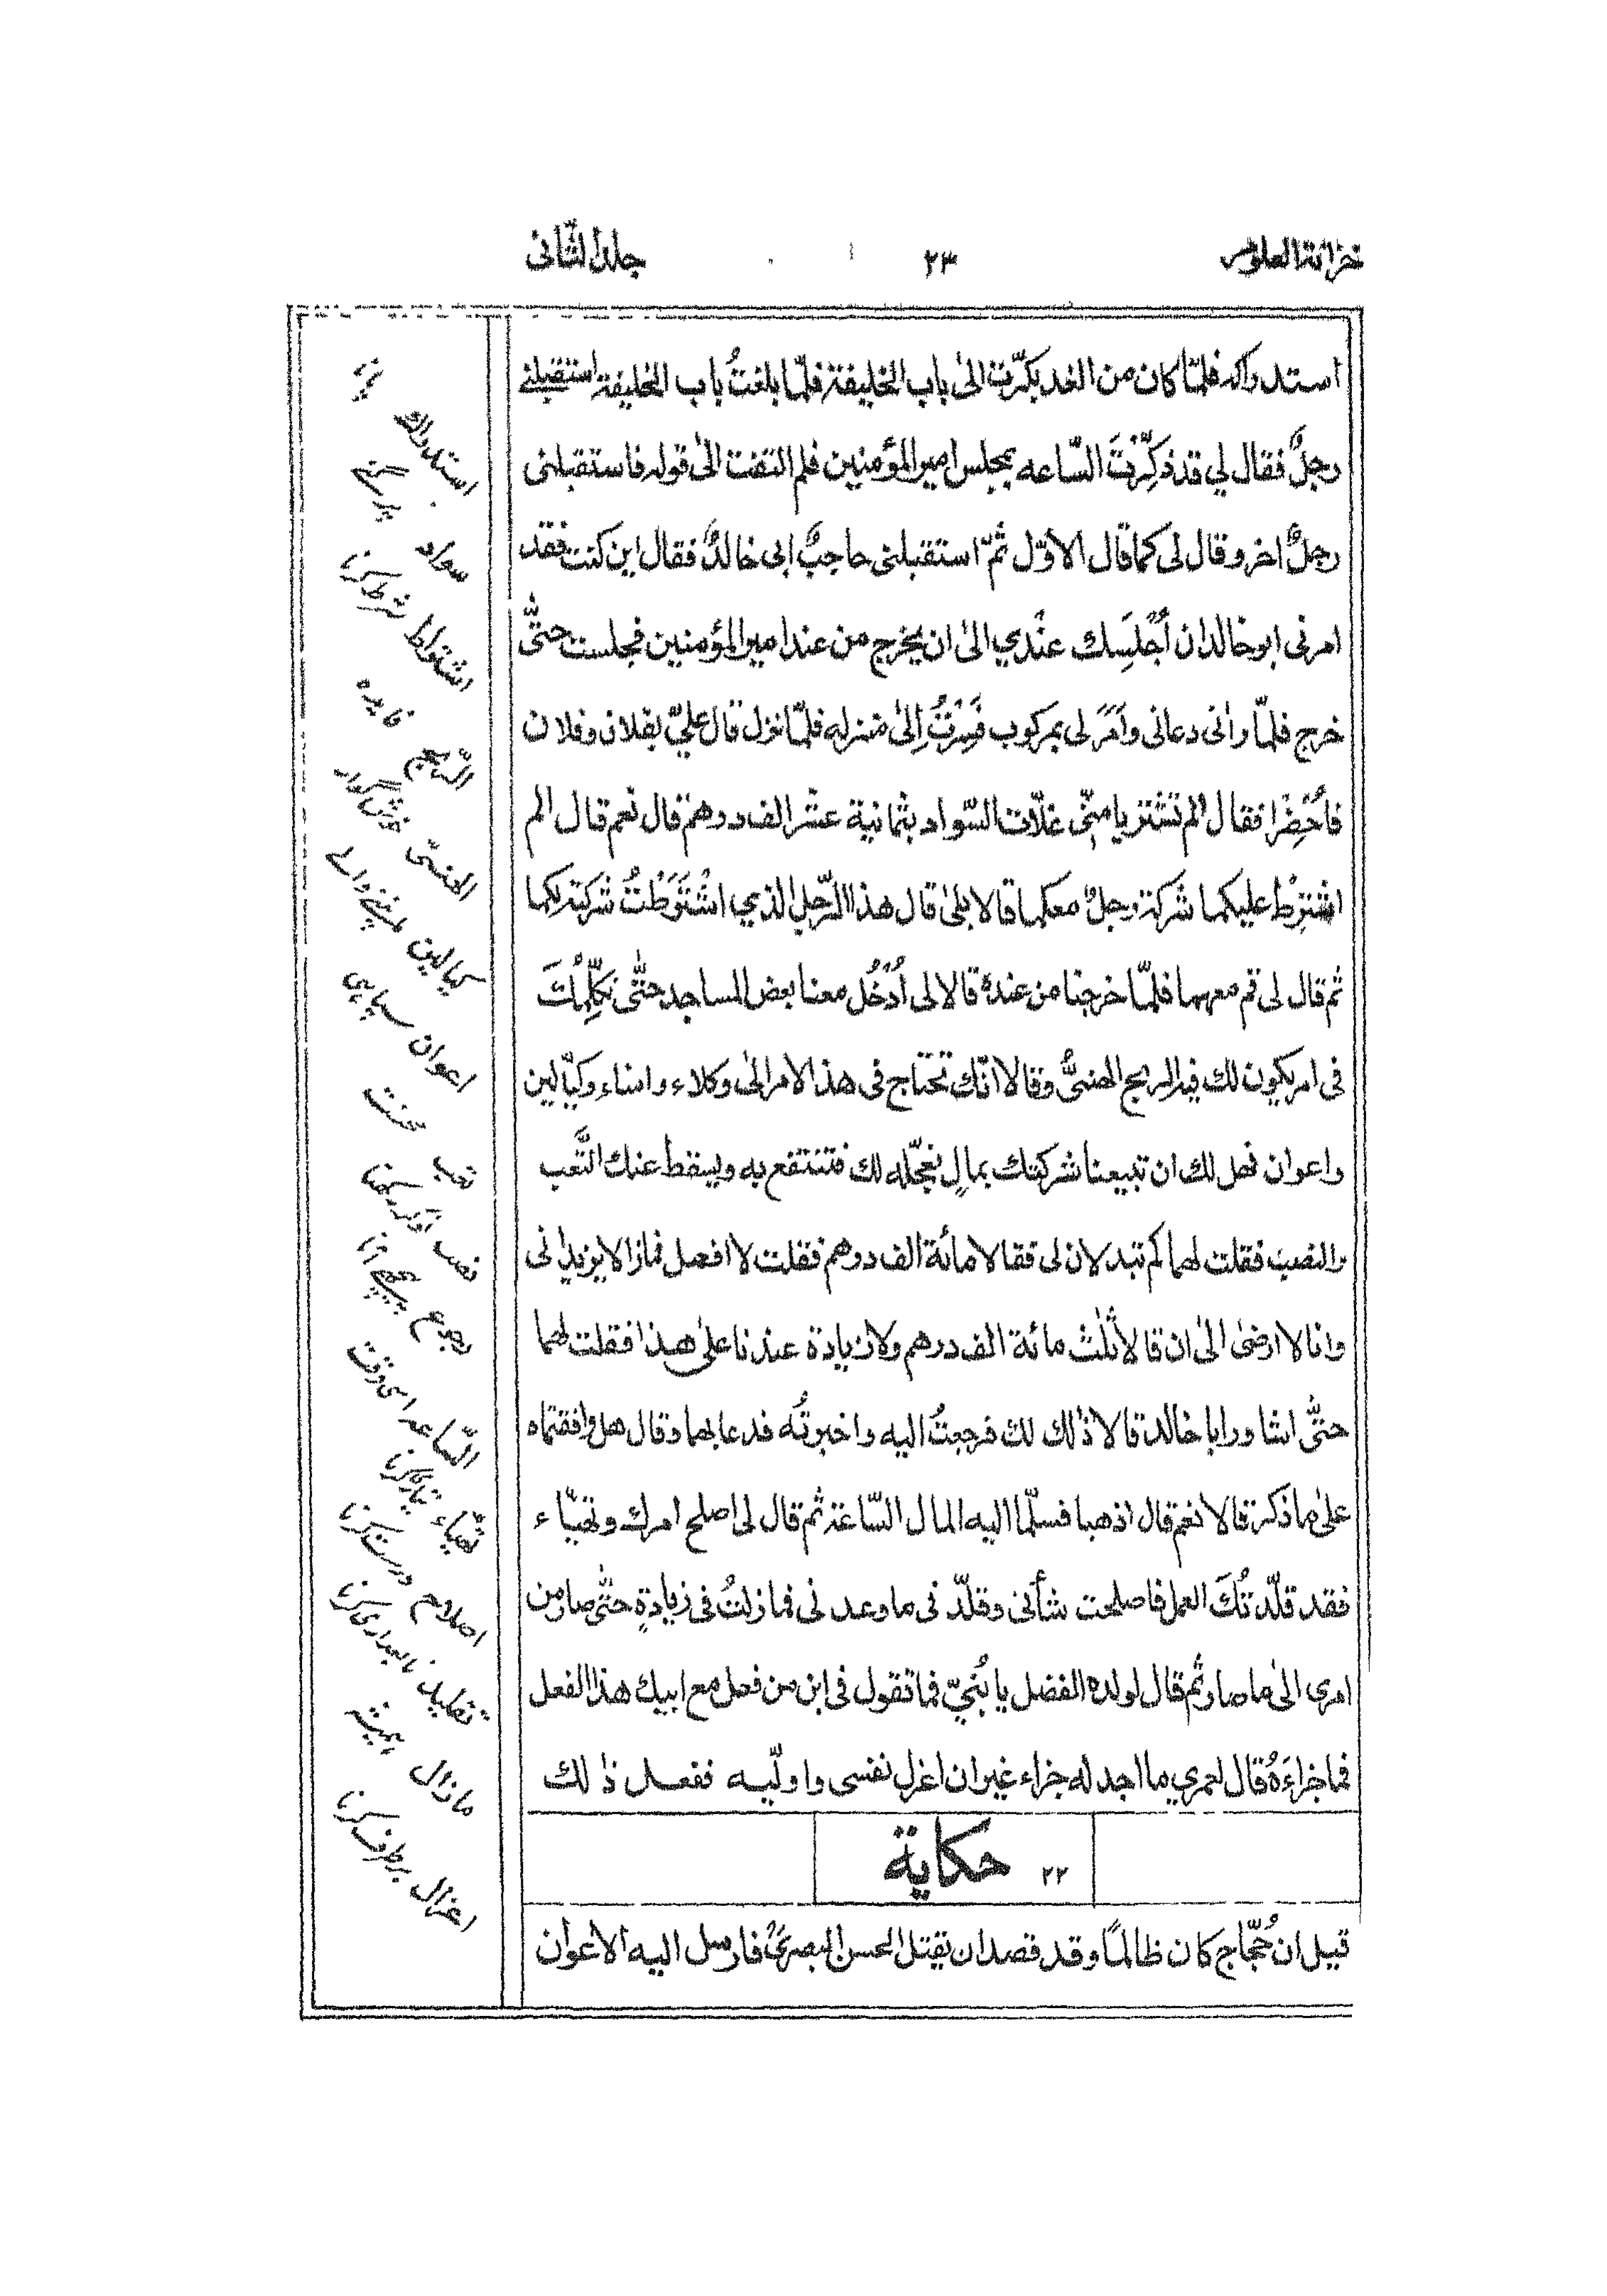 خزانة العلوم
٢٣
جلد الثانى
استدراكه فلمّا كان من الغد بكّرت الىٰ باب الخليفة فلمّا بلغتُ باب الخليفة استقبلنے
رجلٌ فقال لي قد ذُكِّرْتَ السّاعه بمجلس امير المؤمنين فلم التفت الىٰ قوله فاستقبلنى
رجلٌ اخر وقال لى كما قال الاوّل ثمّ استقبلنى حاجبٌ ابى خالدٌ فقال اين كنت فقد
امرنى ابو خالد ان اُجْلِسَك عنْدي الىٰ ان يخرج من عند امير المؤمنين فجلست حتّٰى
خرج فلمّا رانى دعانى وأمَرَ لى بمركوب فَسِرْتُ اِلىٰ منزله فلمّا نزل قال عليَّ بفلان وفلان
فأُحْضِرَا فقال الم تشتر يا منّى غلّات السّواد بثمانية عشر الف درهم قال نعم قال الم
اشترِطْ عليكما شركة رجلٌ معكما قالا بلىٰ قال هذا الرّجل الذي اشْتَرَطْتُ شركته لكما
ثم قال لى قم معهما فلمّا خرجنا من عنده قالا لى اُدْخُل معنا بعض المساجد حتّٰى نكلِّمْكَ
فى امر يكون لك فيه الربح الهنىُّ وقالا انّك تحتاج فى هذا الامر الىٰ وكلاء وامناء وكيّالين
واعوان فهل لك ان تبيعنا شركتك بمالٍ نعجّله لك فتنتفع به ويسقط عنك التّعب
والنصب فقلت لهما كم تبدلان لى فقالا مائة الف درهم فقلت لا افعل فمازالا يزيدانى
وانا لا ارضىٰ الىٰ ان قالا ثلٰث مائة الف درهم ولا زيادة عندنا علىٰ هذا فقلت لهما
حتّٰى اشاور ابا خالد قالا ذٰلك لك فرجعتُ اليه واخبرتُه فدعا بهما وقال هل وافقتماه
علىٰ ما ذكرة قالا نعم قال اذهبا فسلّما اليه المال السّاعة ثم قال لى اصلح امرك وتهيّاء
فقد قلّدتُكَ العمل فاصلحت شأنى وقلّد نى ما وعد نى فما زلتُ فى زيادةٍ حتّٰى صار من
امرى الىٰ ما صار ثم قال لولده الفضل يا بُنيّ فما تقول فى ابن من فعل مع ابيك هذا الفعل
فما جزاءَهُ قال لعمري ما اجد له جزاء غير ان اعزل نفسى واولّيه ففعل ذٰلك
٢٢ حكاية
قيل ان حُجّاج كان ظالمًا وقد قصد ان يقتل الحسن البصرىؒ فارسل اليه الاعوان
استدراك
سواد
اشتراط شرط کرنا
الرّبح فایده
الهنىّ خوش گوار
كيالين
اعوان سپاہی
تعب محنت
نصب
رجوع
السّاعه اسی وقت
تهيّاء تیار کرنا
اصلاح درست کرنا
تقليد
ما زال ہمیشہ
اعزال برطرف کرنا